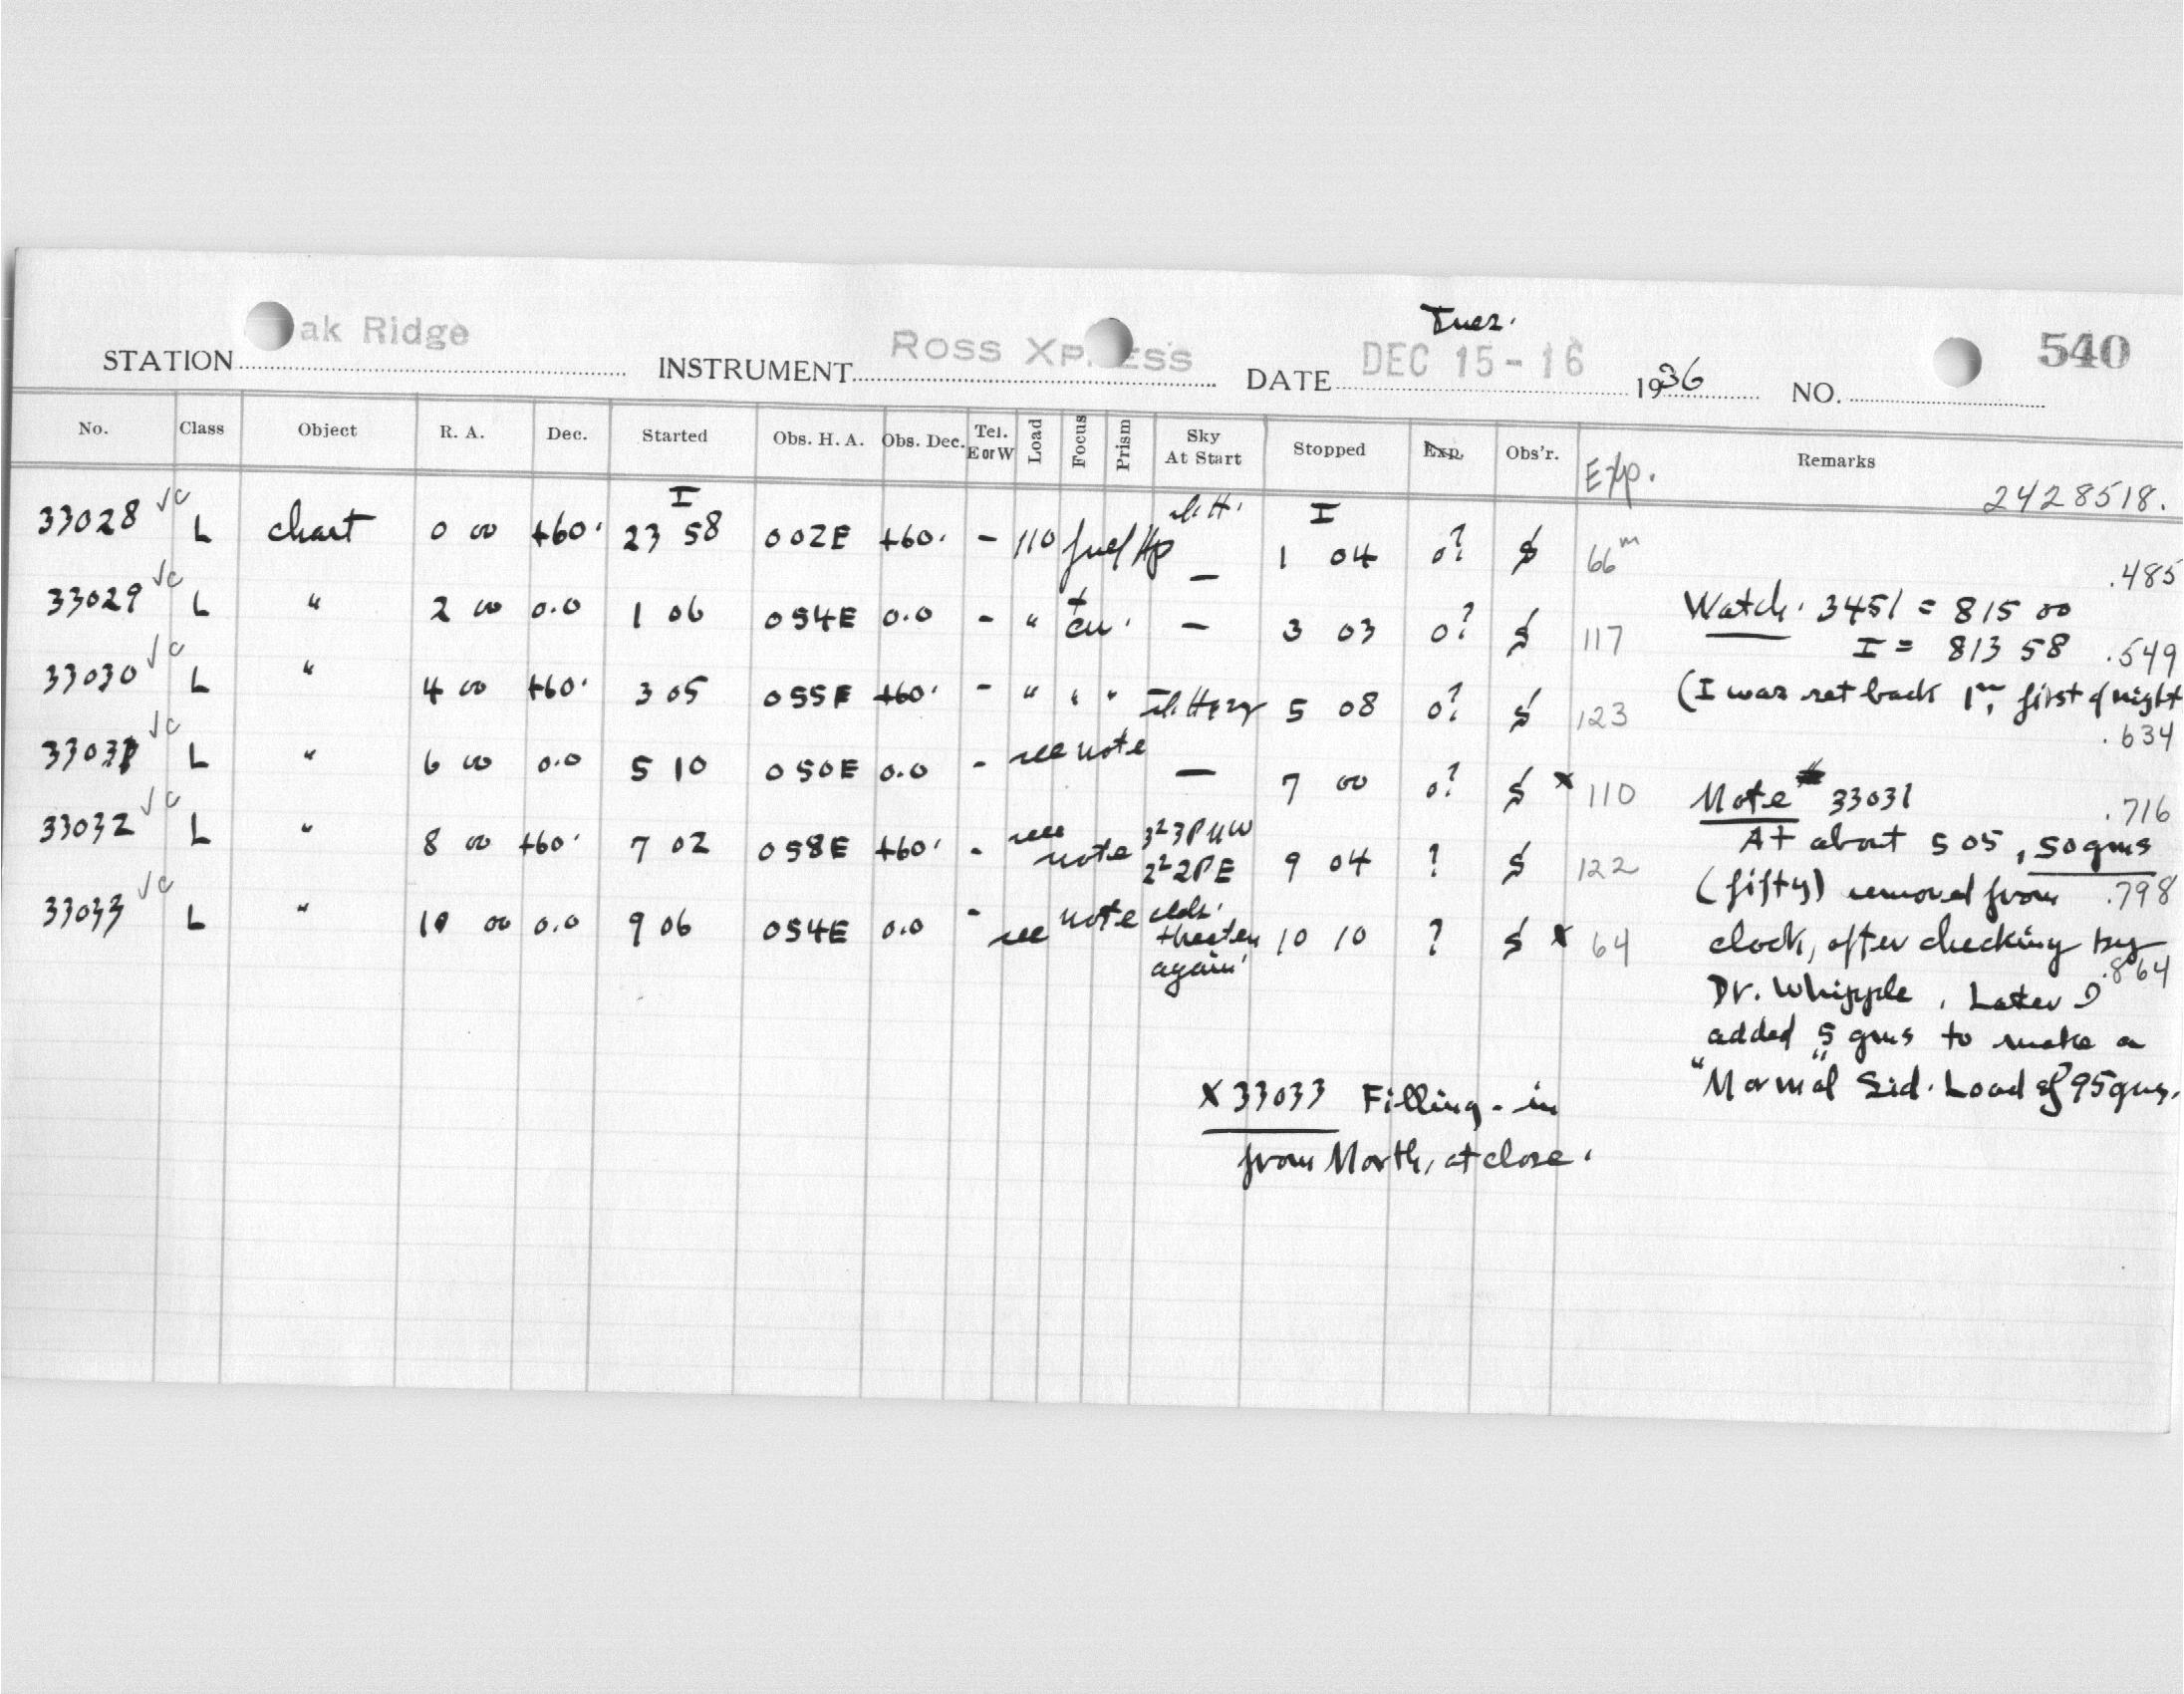 Tues.
STATION ak Ridge INSTRUMENT ROSS XP ESS DATE DEC 15-16 1936 NO. 540
No. Class Object R. A. Dec. Started Obs. H. A. Obs. Dec. Tel. E or W Load Focus Prism Sky At Start Stopped Exp. Obs'r. Exp. Remarks
2428518.
I I
33028 √c L chart 0 00 +60. 23 58 002E +60. - 110 — 1 04 0? $ 66m .485
33029 √c L " 2 00 0.0 1 06 054E 0.0 - " — 3 03 0? $ 117 .549
33030 √c L " 4 00 +60. 3 05 055E +60. - " " " 5 08 0? $ 123 .634
33031 √c L " 6 00 0.0 5 10 050E 0.0 - see note — 7 00 0? $ x 110 .716
33032 √c L " 8 00 +60. 7 02 058E +60. - see note 9 04 ? $ 122 .798
33033 √c L " 10 00 0.0 9 06 054E 0.0 - see note clds. threaten again. 10 10 ? $ x 64 .864
Watch. 3451 = 815 00
I = 813 58
(I was set back 1m, first of night
Note # 33031
At about 5 05, 50 gms
(fifty) removed from
clock, after checking by
Dr. Whipple. Later I
added 5 gms to make a
"Normal" Sid. Load of 95 gms.
X 33033 Filling-in
from North, at close.